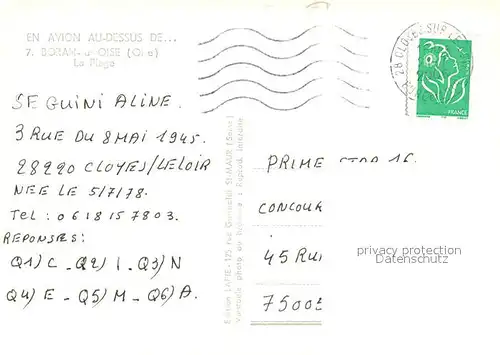 EN AVION AU-DESSUS DE...
7. BORAN-s-OISE (Oise)
La Plage
28 CLOYES SUR LE
FRANCE
SEGUINI ALINE.
3 RUE DU 8 MAI 1945.
28220 CLOYES/LELOIR
NEE LE 5/7/78.
TEL : 0618157803.
REPONSES :
Q1) C - Q2) I - Q3) N
Q4) E - Q5) M - Q6) A.
Edition LAPIE - 125 rue
Véritable photo au bromure - Reproduction interdite
PRIME STAR 16
CONCOUR
45 RUE
75008
privacy protection
www.ansichtskartenversand.com